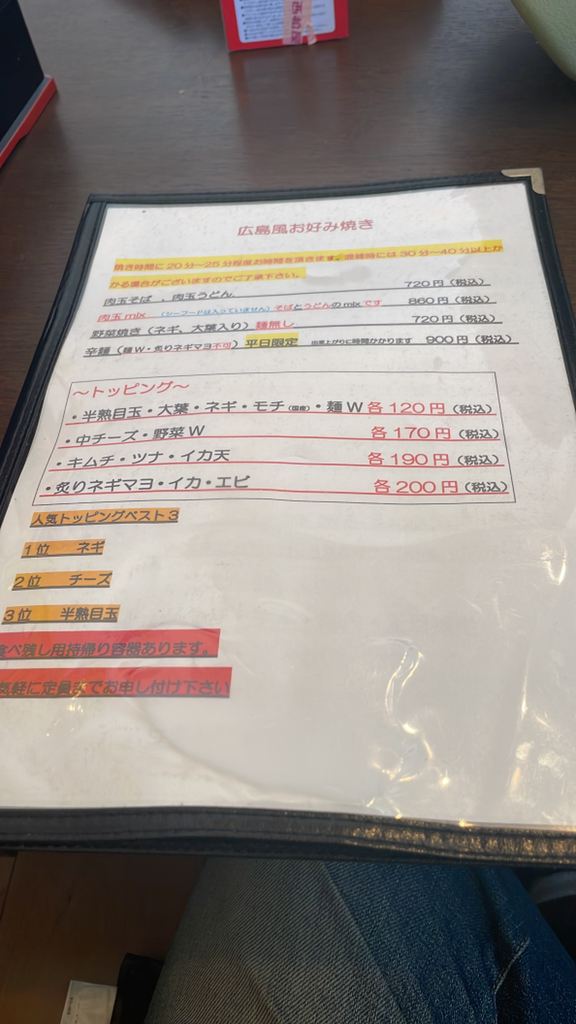 広島風お好み焼き
焼き時間に20分～25分程度お時間を頂きます。混雑時には30分～40分以上か
かる場合がございますのでご了承下さい。
肉玉そば 、肉玉うどん 720円(税込)
肉玉mix (シーフードは入っていません) そばとうどんのmixです 860円(税込)
野菜焼き(ネギ、大葉入り)麺無し 720円(税込)
辛麺(麺W・炙りネギマヨ不可) 平日限定 出来上がりに時間かかります 900円(税込)
～トッピング～
・半熟目玉・大葉・ネギ・モチ(国産)・麺W 各120円(税込)
・中チーズ・野菜W 各170円(税込)
・キムチ・ツナ・イカ天 各190円(税込)
・炙りネギマヨ・イカ・エビ 各200円(税込)
人気トッピングベスト3
1位 ネギ
2位 チーズ
3位 半熟目玉
食べ残し用持帰り容器あります。
気軽に定員までお申し付け下さい